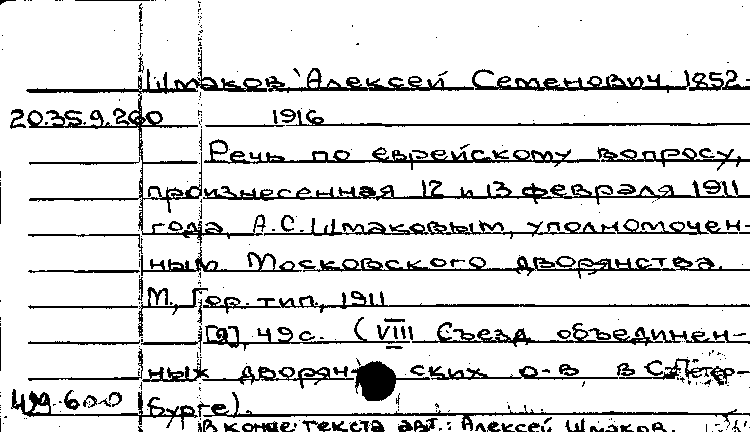 Шмаков, Алексей Семенович, 1852-
20.35.9.260 1916
Речь по еврейскому вопросу,
произнесенная 12 и 13 февраля 1911
года, А.С. Шмаковым, уполномочен-
ным Московского дворянства.
М., Гор. тип., 1911
[2], 49 с. (VIII Съезд объединен-
ных дворян- ских о-в в С.-Петер-
бурге).
В конце текста авт.: Алексей Шмаков.